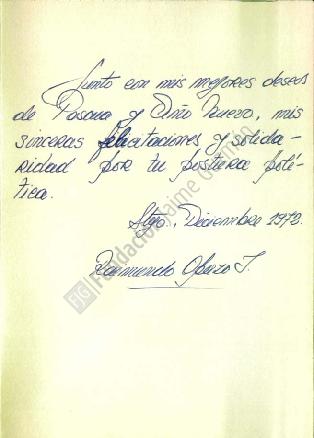 Junto con mis mejores deseos
de Pascua y Año Nuevo, mis
sinceras felicitaciones y solida-
ridad por tu postura polí-
tica.
Stgo., Diciembre 1972.
Raimundo J.
FJG | Fundación Jaime Guzmán